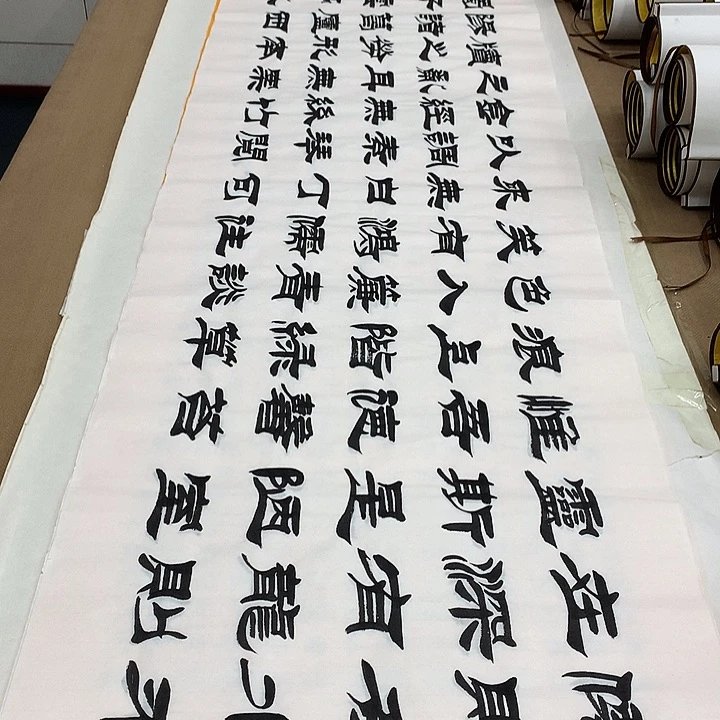 在深有龍則
靈斯是陋室
惟吾德馨苔
痕上階綠草
色入簾青談
笑有鴻儒往
來無白丁可
以調素琴閱
金經無絲竹
之亂耳無案
牘之勞形南
陽諸葛廬西